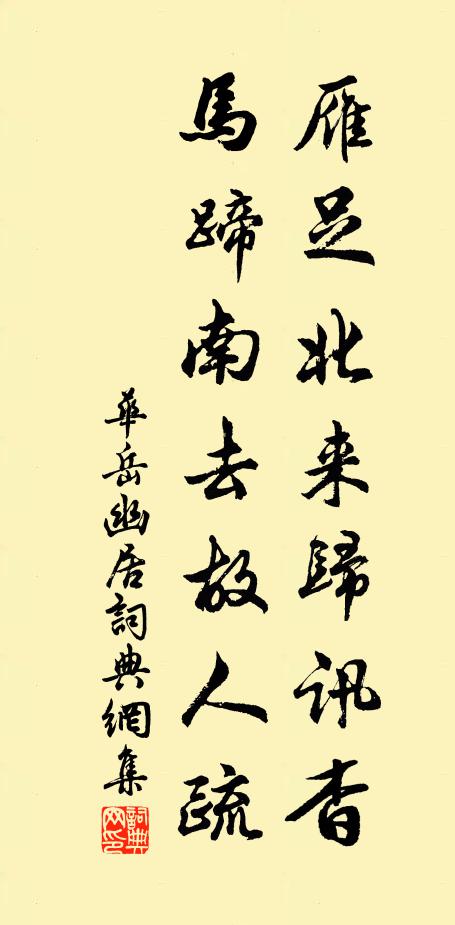 雁足北来歸訊杳
馬蹄南去故人疏
華岳幽居詞典網集
詞典網印